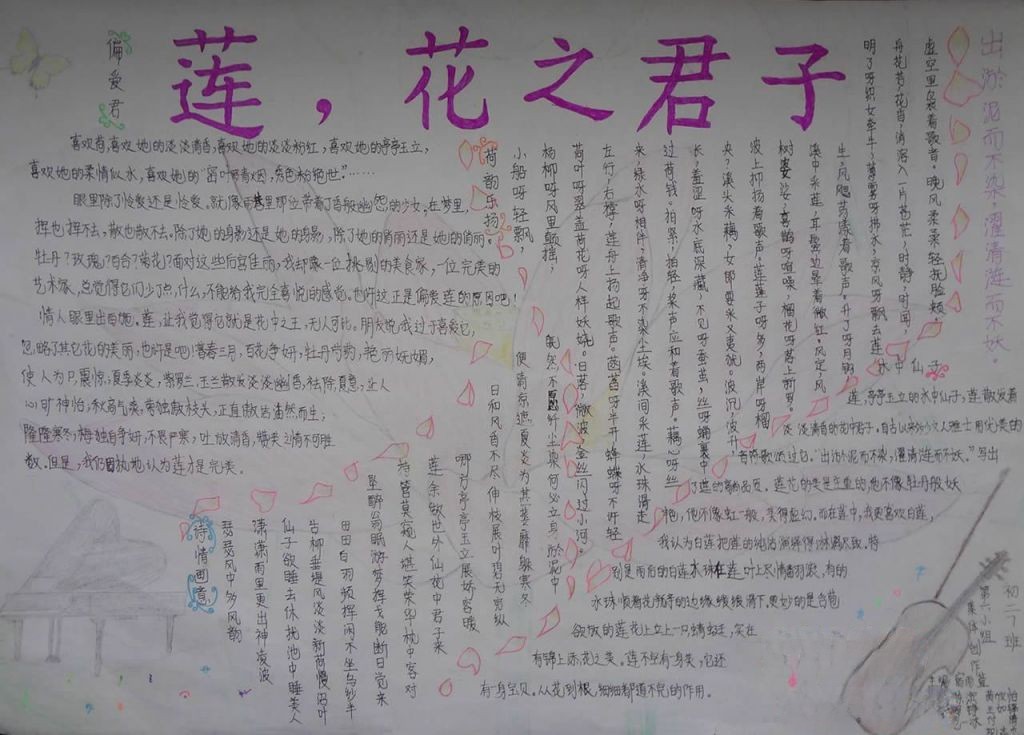 莲，花之君子
出淤泥而不染，濯清涟而不妖。
偏爱君
喜欢莲，喜欢她的淡淡清香，喜欢她的淡淡粉红，喜欢她的亭亭玉立，
喜欢她的柔情似水，喜欢她的
眼里除了怜爱还是怜爱。就像雨巷里那位带着丁香般幽怨的少女，在梦里，
挥也挥不去，散也散不去。除了她的身影还是她的身影，除了她的俏丽还是她的俏丽。
牡丹？玫瑰？百合？菊花？面对这些后宫佳丽，我却像一位挑剔的美食家，一位完美的
艺术家，总觉得它们少了点什么，不能给我完全喜悦的感觉。也许这正是偏爱莲的原因吧！
情人眼里出西施。莲，让我觉得它就是花中之王，无人可比。朋友说我过于喜爱它，
忽略了其它花的美丽，也许是吧！暮春三月，百花争妍，牡丹芍药，艳而妖媚，
使人为之震惊；夏季炎炎，紫罗兰、玉兰散发淡淡幽香，祛除夏意，让人
心旷神怡；秋高气爽，菊独傲枝头，正直傲洁油然而生；
隆隆寒冬，梅独自争妍，不畏严寒，吐放清香，赞美之情不可胜
数。但是，我仍固执地认为莲才是完美。
荷韵乐扬
小船呀轻飘，
杨柳呀风里颠摇，
荷叶呀翠盖荷花呀人样妖娆。日落，微波，金丝闪过小河。
左行，右撑，莲舟上扬起歌声。菡萏呀半开，蜂蝶呀不许轻
来，绿水呀相伴，清净呀不染尘埃。溪间采莲，水珠滑走
过荷钱。拍紧，拍轻，桨声应和着歌声。藕心呀丝
长，羞涩呀水底深藏，不见呀蚕茧，丝呀蛹裹中
央？溪头采藕，女郎要采又夷犹。波沉，波升，
波上抑扬着歌声。莲蓬子呀多，两岸呀榴
树婆娑，喜鹊呀喧噪，榴花呀落上新罗。
溪中采莲，耳鬓边晕着微红。风定，风
生，风飔荡漾着歌声。升了呀月钩
明了呀织女牵牛，薄雾呀拂水，凉风呀飘去莲
舟。花芳，花香，消溶入一片苍茫，时静，时闻，
虚空里袅着歌音。晚风柔柔轻抚脸颊
水中仙子
莲，亭亭玉立的水中仙子，莲，散发着
淡淡清香的花中君子。自古以来许多文人雅士用优美的
诗歌颂过它。“出淤泥而不染，濯清涟而不妖。”写出
了莲的品质。莲花的美是庄重的，他不像牡丹般妖
艳，他不像虹一般，美得虚幻。而在莲中，我更喜欢白莲，
我认为白莲把莲的纯洁演绎得淋漓尽致。特
别是雨后的白莲，水珠在莲叶上尽情翻滚，有的
水珠顺着花瓣的边缘缓缓滑下。更妙的是含苞
欲放的莲花上立上一只蜻蜓，实在
有锦上添花之美。莲不仅有一身美，它还
有一身宝贝。从花到根，细细都道不完的作用。
诗情画意
瑟瑟风中多风韵
潇潇雨里更出神凌波
仙子欲睡去休扰池中睡美人
古柳垂堤风淡淡新荷慢沼叶
田田白羽频挥闲不坐乌纱半
坠醉翁眠游梦挥戈能断日觉来
持管莫窥人堪笑荣华枕中客对
莲余欹世外仙花中君子来
哪方亭亭玉立展娇容暖
日和风香不尽伸枝展叶碧无穷纵
使清凉遮夏炎为其萎靡躲寒冬
既然不愿纤尘染何必立身淤泥中
初二7班
第六小组
集体创作